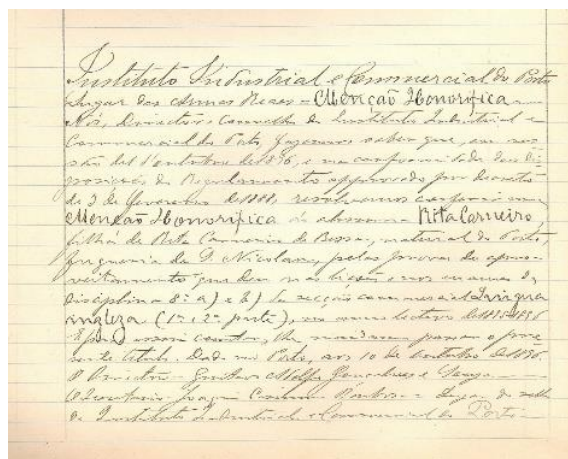 Instituto Industrial e Commercial do Porto
Lugar das Armas Reaes = Menção Honorifica =
Nós, Director e Conselho do Instituto Industrial e
Commercial do Porto, fazemos saber que, em ses-
são de 1 d'outubro de 1896, e na conformidade das dis-
posições do Regulamento approvado por decreto
de 3 de fevereiro de 1888, resolvemos conferir uma
Menção Honorifica á alumna Rita Carneiro,
filha de Rita Carneiro de Bessa, natural do Porto,
freguesia de S. Nicolau, pelas provas de apro-
veitamento que deu nas lições e nos exames da
disciplina 8ª a) e b) da secção commercial Lingua
ingleza (1ª e 2ª parte), no anno lectivo de 1895-1896
E para assim constar, lhe mandamos passar o pre-
sente titulo. Dado no Porto, aos 10 de outubro de 1896.
O Director = Gustavo Adolpho Gonçalves e Souza
O Secretario Joaquim = Lugar do sello
do Instituto Industrial e Commercial do Porto =